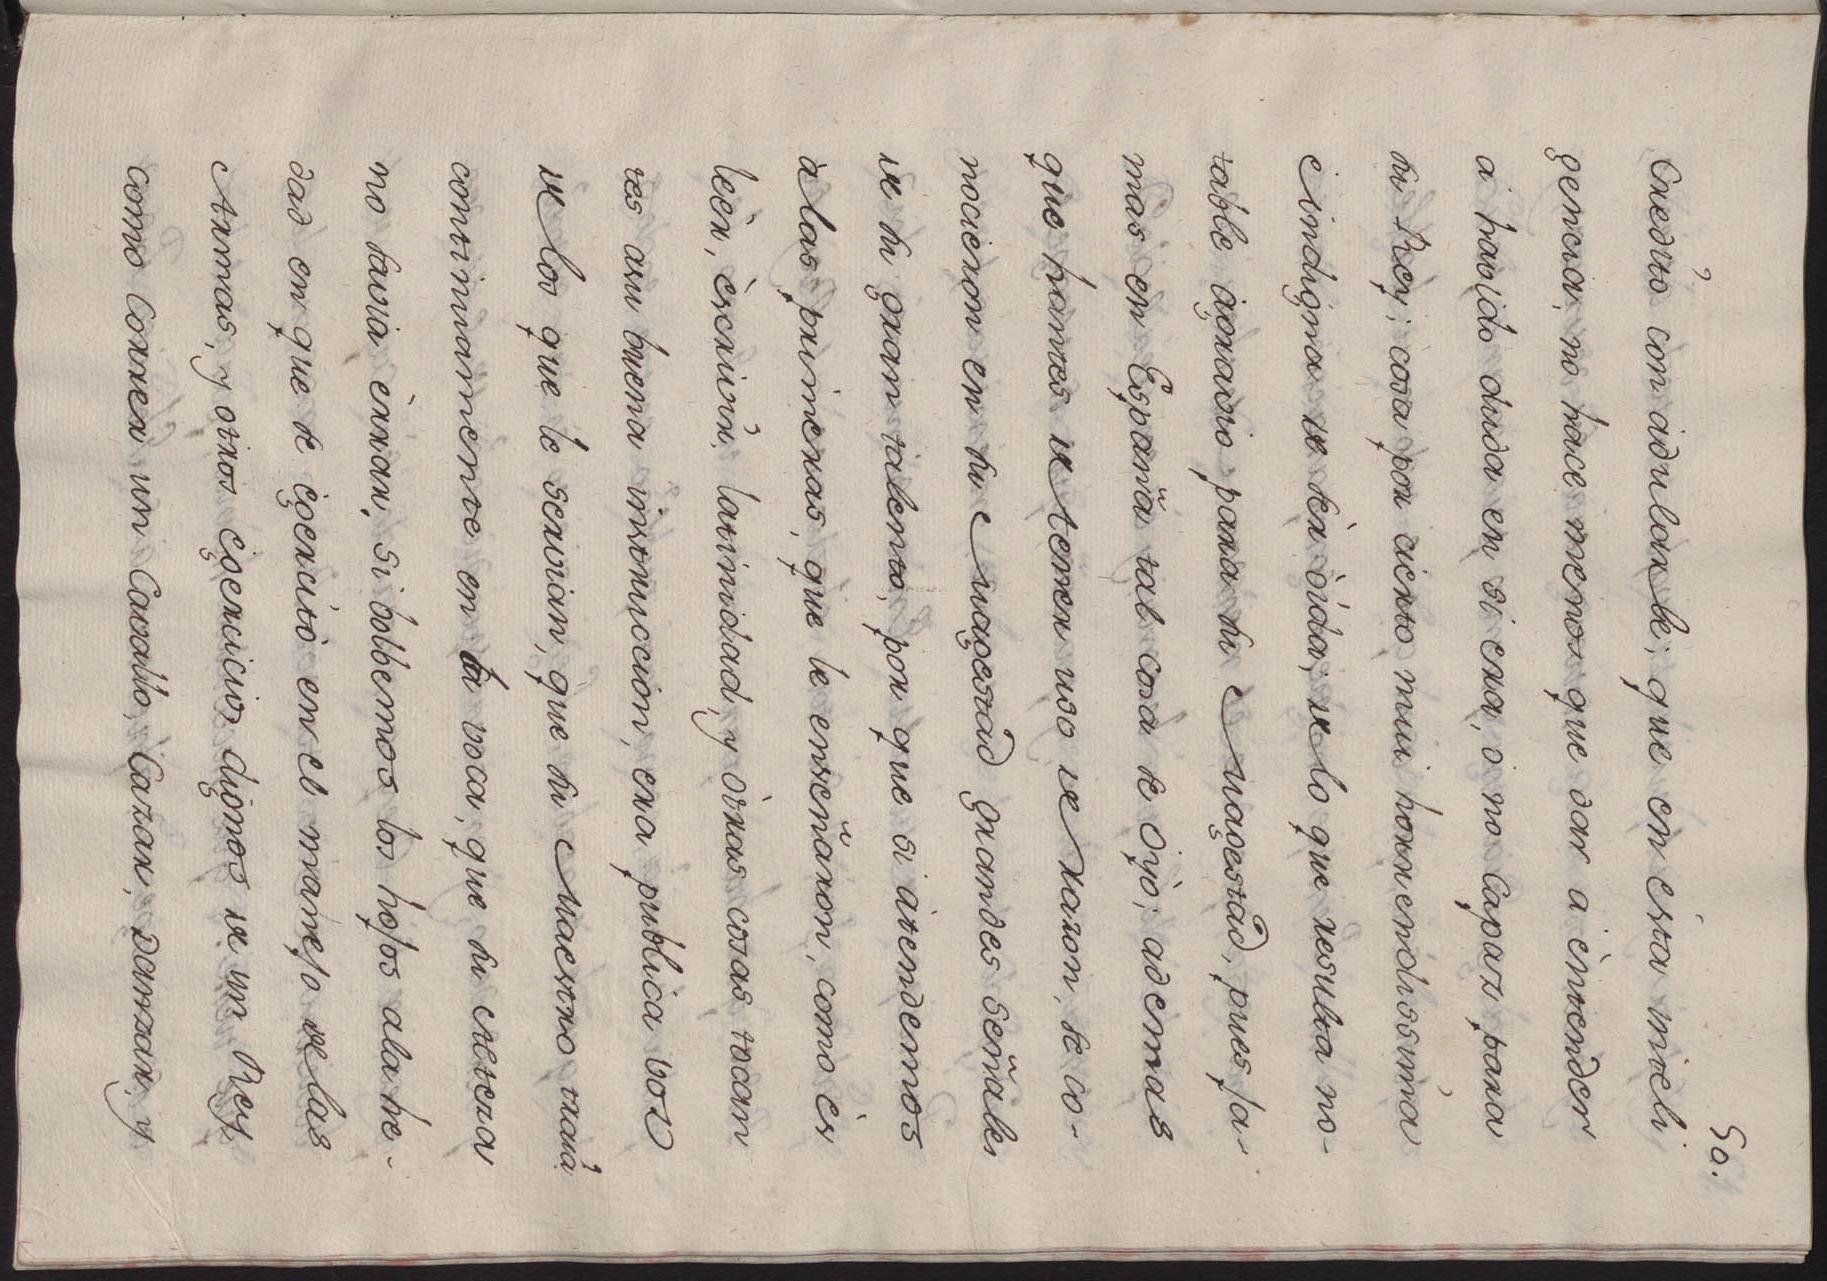 50.
Credito con àdularle; que en ésta inteli
gencia, no hace menos que dar a èntender
à havido duda en si era, ò no Capatz para
su Rey; cosa por cierto mui horrendissima
è indigna de sèr òida; de lo que resulta no-
table àgravio para su Magestad, pues ja-
mas en España tal cosa se Oyò; ademas
que hantes de tener uso de razon, se co-
nocieron en su Magestad grandes señales
de su gran talento, por que si àtendemos
à las primeras, que le enseñaron, como és
leèr, èscrivir, latinidad, y òtras cosas tocan
tes asu buena instruccion, era publica voz
de los que le servian, que su Maestro traìa
continuamente en la voca, que su Alteza
no savia èrrar, si bolbemos los hojos ala he-
dad en que se èjercitò en el manejo de las
Armas, y otros ejercicios dignos de un Rey
como Correr un Cavallo, Cazar, Danzar, y